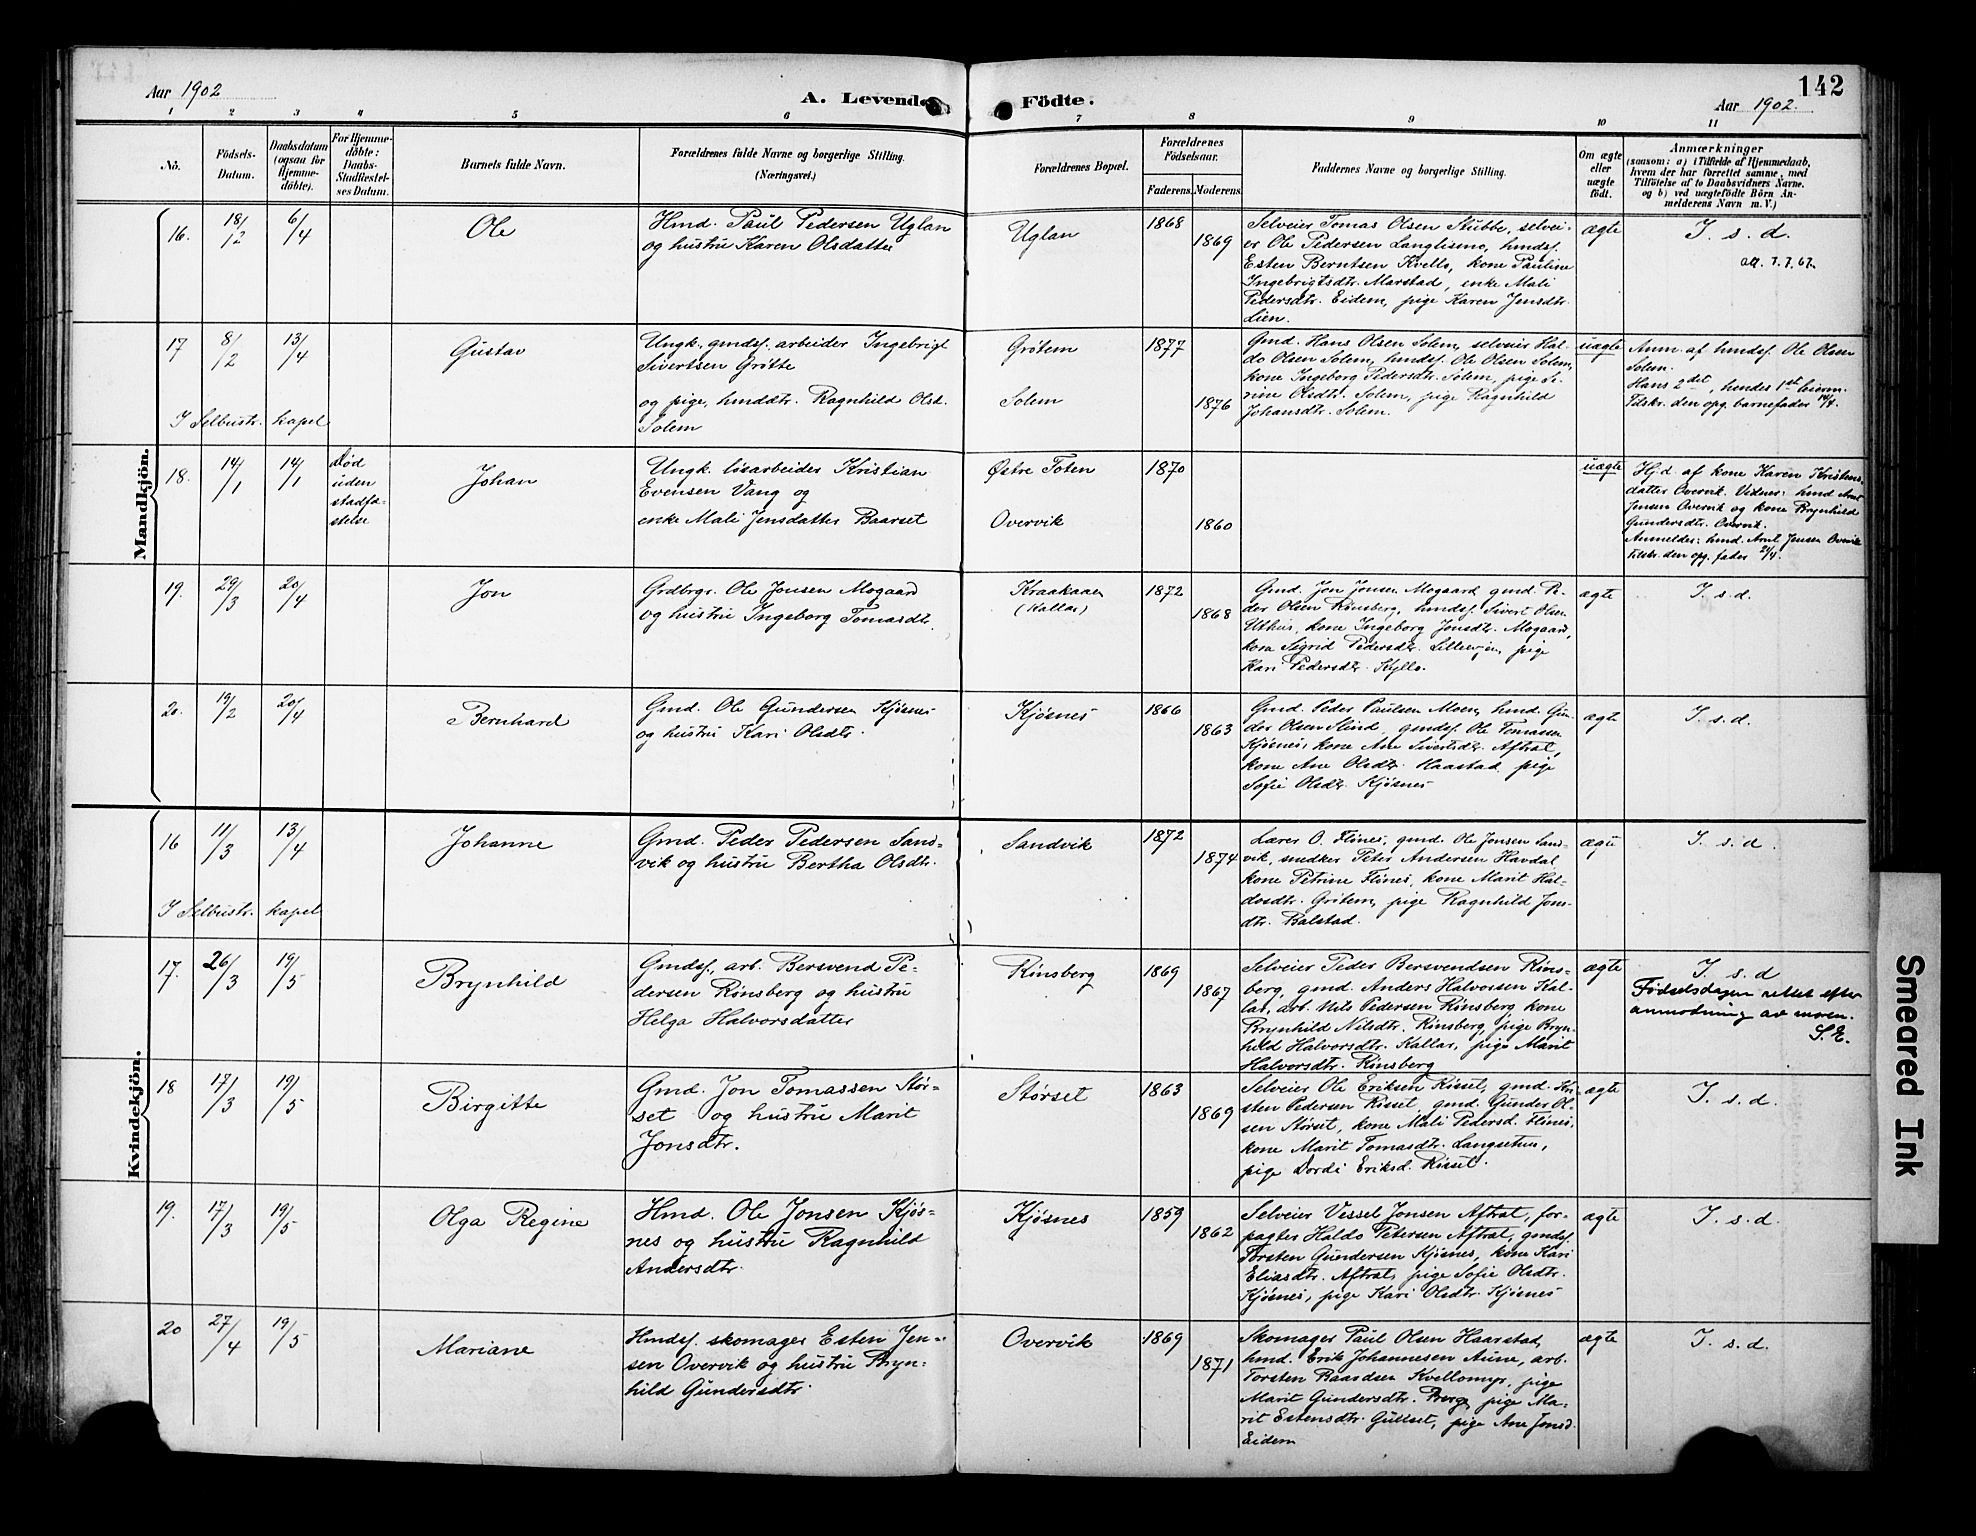 142
Aar 1902
A. Levende
Födte.
Aar 1902.
1 2 3 4 5 6 7 8 9 10 11
No.
Födsels-
Datum.
Daabsdatum
(ogsaa for
Hjemme-
döbte).
For Hjemme-
döbte:
Daabs-
Stadfæstel-
ses Datum.
Barnets fulde Navn.
Forældrenes fulde Navne og borgerlige Stilling.
(Næringsvei.)
Forældrenes Bopæl.
Forældrenes
Födselsaar.
Faderens. Moderens.
Faddernes Navne og borgerlige Stilling.
Om ægte
eller
uægte
født.
Anmærkninger
(saasom: a) i Tilfælde af Hjemmedaab,
hvem der har forrettet samme, med
Tilföielse af to Daabsvidners Navne,
og b) ved uægtefödte Börn An-
melderens Navn m. V.)
Mandkjön.
16.
18/2
6/4
Ole
Hmd. Paul Pedersen Uglan
og hustru Karen Olsdatter
Uglan
1868
1869
Selveier Tomas Olsen Stubbe, selvei-
er Ole Pedersen Langlismo, hmdsf.
Esten Berntsen Kvello, kone Pauline
Ingebrigtsdtr. Marstad, enke Mali
Pedersdtr. Eidem, pige Karen Jensdtr.
Lien.
ægte
I. s. d.
att. 7.7.67.
17
8/2
13/4
Gustav
Ungk., gmdsf. arbeider Ingebrigt
Sivertsen Grötte
og pige, hmddtr. Ragnhild Olsd.
Solem
I Selbustr. kapel
Grötem
Solem
1877
1876
Gmd. Hans Olsen Solem, selveier Hal-
do Olsen Solem, hmdsf. Ole Olsen Solem,
kone Ingeborg Pedersdtr. Solem, pige Se-
rine Olsdtr. Solem, pige Ragnhild
Johansdtr. Solem.
uægte
Anm. af hmdsf. Ole Olsen
Solem.
Hans 2det, hendes 1ste leierm.
Tilskr. den opg. barnefader 14/4.
18.
14/1
14/1
død
uden
stadfæ-
stelse
Johan
Ungk. løsarbeider Kristian
Evensen Vang og
enke Mali Jensdatter Baarset
Østre Toten
Overvik
1870
1860
uægte
Hj.d. af kone Karen Kristens-
datter Overvik. Vidner: hmd Arnt
Jensen Overvik og kone Brynhild
Gundersdtr. Overvik.
Anmelder: hmd. Arnt Jensen Overvik
tilskr. den opg. fader 21/4.
19.
29/3
20/4
Jon
Grdbrgr. Ole Jonsen Mogaard
og hustru Ingeborg Tomasdtr.
Kraakaan
(Kallar)
1872
1868
Gmd. Jon Jonsen Mogaard gmd. Pe-
der Olsen Rönsberg, hmdsf. Sivert Olsen
Uthus, kone Ingeborg Jonsdtr. Mogaard,
kone Sigrid Pedersdtr. Lilleevjen, pige
Kari Pedersdtr. Kyllo.
ægte
I. s. d.
20.
19/2
20/4
Bernhard
Gmd. Ole Gundersen Kjøsnes
og hustru Kari Olsdtr.
Kjøsnes
1866
1863
Gmd. Peder Paulsen Moen, hmd. Gun-
der Olsen Slind, gmdsf. Ole Tomassen
Kjøsnes, kone Ane Sivertsdtr. Aftret,
kone Ane Olsdtr. Haastad, pige
Sofie Olsdtr. Kjøsnes
ægte
I. s. d.
Kvindekjön.
16
11/3
13/4
Johanne
Gmd. Peder Pedersen Sand-
vik og hustru Bertha Olsdtr.
I Selbustr. kapel
Sandvik
1872
1874
Lærer O. Flönes, gmd. Ole Jonsen Sand-
vik, snedker Peter Andersen Havdal
kone Petrine Flönes, kone Marit Hal-
dosdtr. Grötem, pige Ragnhild Jons-
dtr. Balstad.
ægte
I. s. d.
17.
26/3
19/5
Brynhild
Gmdsf., arb. Bersvend Pe-
dersen Rönsberg og hustru
Helga Halvorsdatter
Rönsberg
1869
1867
Selveier Peder Bersvendsen Röns-
berg, gmd. Anders Halvorsen Kal-
lar, arb. Nils Pedersen Rönsberg, kone
Brynhild Nilsdtr. Rönsberg, pige Bryn-
hild Halvorsdtr. Kallar, pige Marit
Halvorsdtr. Rönsberg
ægte
I. s. d
Fødselsdagen rettet efter
anmodning av moren.
S. E.
18
17/3
19/5
Birgitte
Gmd. Jon Tomassen Stør-
set og hustru Marit
Jonsdtr.
Størset
1863
1869
Selveier Ole Eriksen Risset, gmd. Kri-
sten Pedersen Risset, gmd. Gunder Ol-
sen Størset, kone Mali Pedersd. Flönes,
kone Marit Tomasdtr. Langseteu,
pige Dordi Eriksd. Risset.
ægte
I. s. d.
19.
17/3
19/5
Olga Regine
Hmd. Ole Jonsen Kjøs-
nes og hustru Ragnhild
Andersdtr.
Kjøsnes
1859
1862
Selveier Vessel Jonsen Aftret, for-
pagter Haldo Petersen Aftret, gmdsf.
Torsten Gundersen Kjøsnes, kone Kari
Eliasdtr. Aftret, pige Sofie Olsdtr.
Kjøsnes, pige Kari Olsdtr. Kjøsnes
ægte
I. s. d.
20
27/4
19/5
Mariane
Hmdsf. skomager Esten Jen-
sen Overvik og hustru Bryn-
hild Gundersdtr.
Overvik
1869
1871
Skomager Paul Olsen Haarstad,
hmd. Erik Johannesen Aune, arb.
Torsten Baardsen Kvellomyr, pige
Marit Gundersdtr. Berge, pige Ma-
rit Estensdtr. Gullset, pige Ane Jonsd.
Eidem
ægte
I. s. d.
Smeared Ink